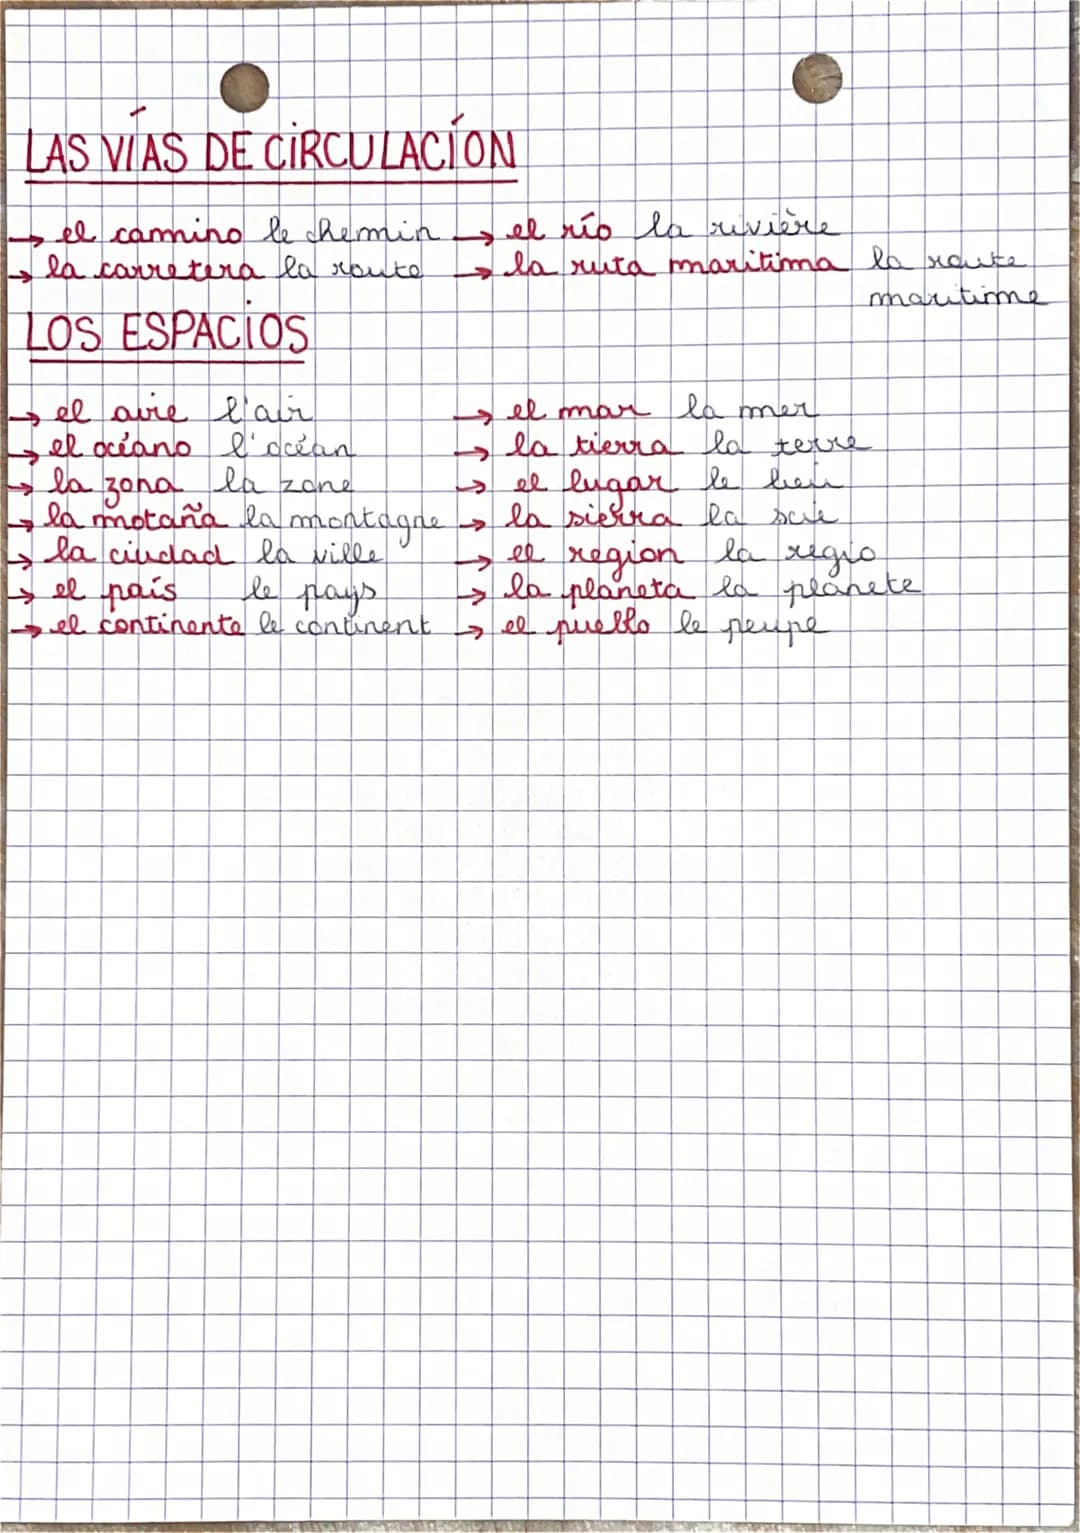 LAS VÍAS DE CIRCULACÍON
→ el camino le chemin → el río la rivière
→ la carretera la route → la ruta maritima la route
maritime
LOS ESPACIOS
→ el aire l'air → el mar la mer
→ el océano l'océan → la tierra la terre
→ la zona la zone → el lugar le lieu
→ la motaña la montagne → la sierra la scie
→ la ciudad la ville → el region la régio
→ el país le pays → la planeta la planète
→ el continente le continent → el puello le peupe